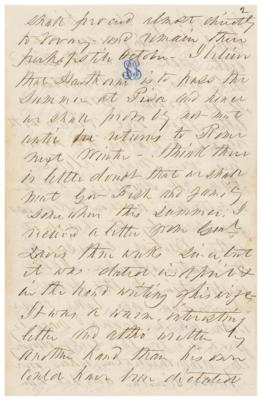 2
shall proceed almost directly
to Vevay and remain there
perhaps till October. I believe
that Hawthorne is to pass the
Summer at Pisa and hence
we shall probably not meet
until he returns to Rome
next Winter. I think there
is little doubt that we shall
meet Gov Fish and family
some where this summer. I
received a letter from Genl
Davis three weeks since, but
it was dated in April &
in the hand writing of his wife.
It was a warm, interesting
letter and altho written by
another hand than his own
could have been dictated